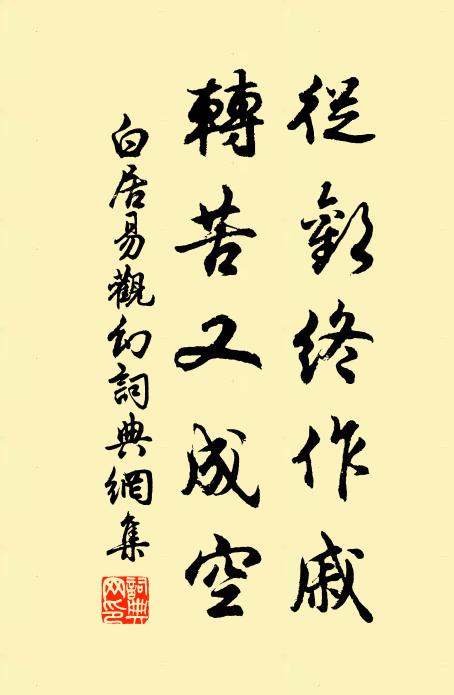 從歡終作戚
轉苦又成空
白居易觀幻詞典網集
詞典網印